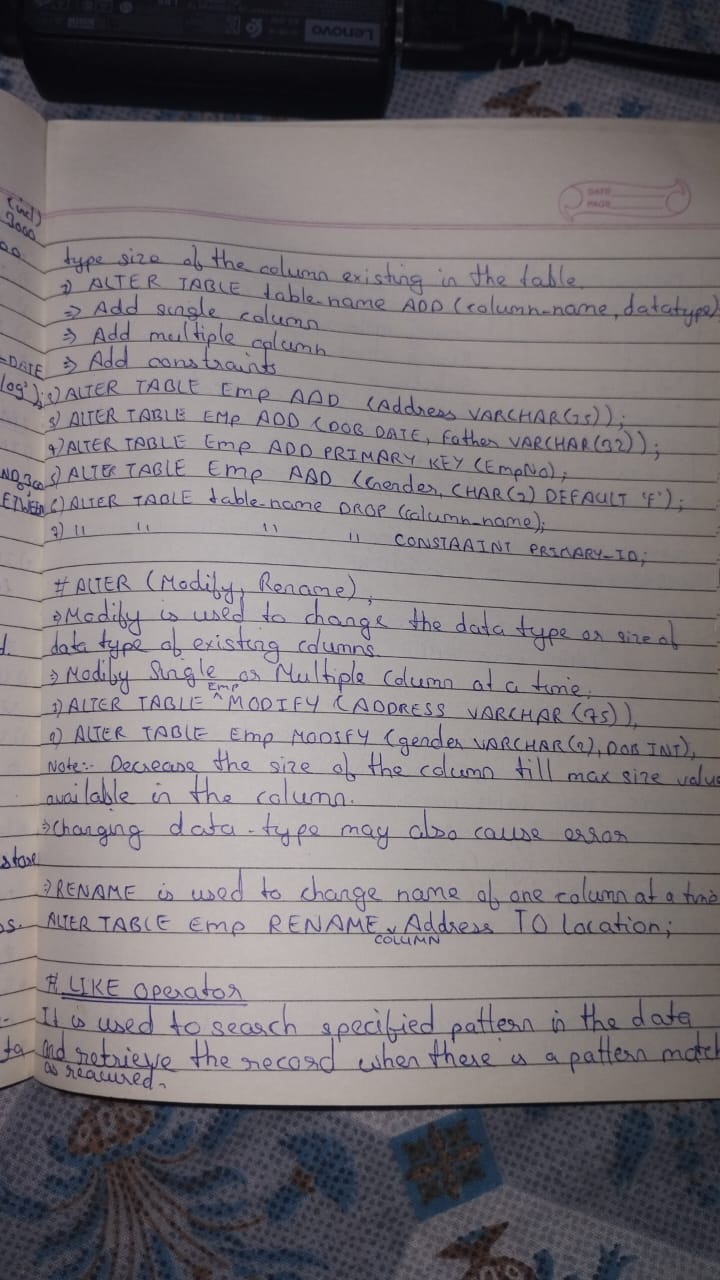 Lenovo
DATE
PAGE
(incl)
3000
type size of the column existing in the table.
1) ALTER TABLE table-name ADD (column-name, datatype)
⇒ Add single column
⇒ Add multiple column
-DATE
⇒ Add constraints
2) ALTER TABLE Emp ADD (Address VARCHAR(25));
3) ALTER TABLE EMP ADD (DOB DATE, Father VARCHAR(32));
4) ALTER TABLE Emp ADD PRIMARY KEY (EmpNo);
5) ALTER TABLE Emp ADD (Gender, CHAR(2) DEFAULT 'F');
6) ALTER TABLE table-name DROP (column_name);
7) 〃 〃 〃 〃 CONSTRAINT PRIMARY_ID;
# ALTER (Modify, Rename),
⇒ Modify is used to change the data type or size of
data type of existing columns.
⇒ Modify Single or Multiple Column at a time.
1) ALTER TABLE Emp MODIFY (ADDRESS VARCHAR (75)),
2) ALTER TABLE Emp MODIFY (gender VARCHAR(2), DOB INT),
Note:- Decrease the size of the column till max size value
available in the column.
⇒ Changing data-type may also cause error
store
⇒ RENAME is used to change name of one column at a time
ALTER TABLE Emp RENAME COLUMN Address TO Location;
# LIKE operator
It is used to search specified pattern in the data
and retrieve the record when there is a pattern match
as reacured.